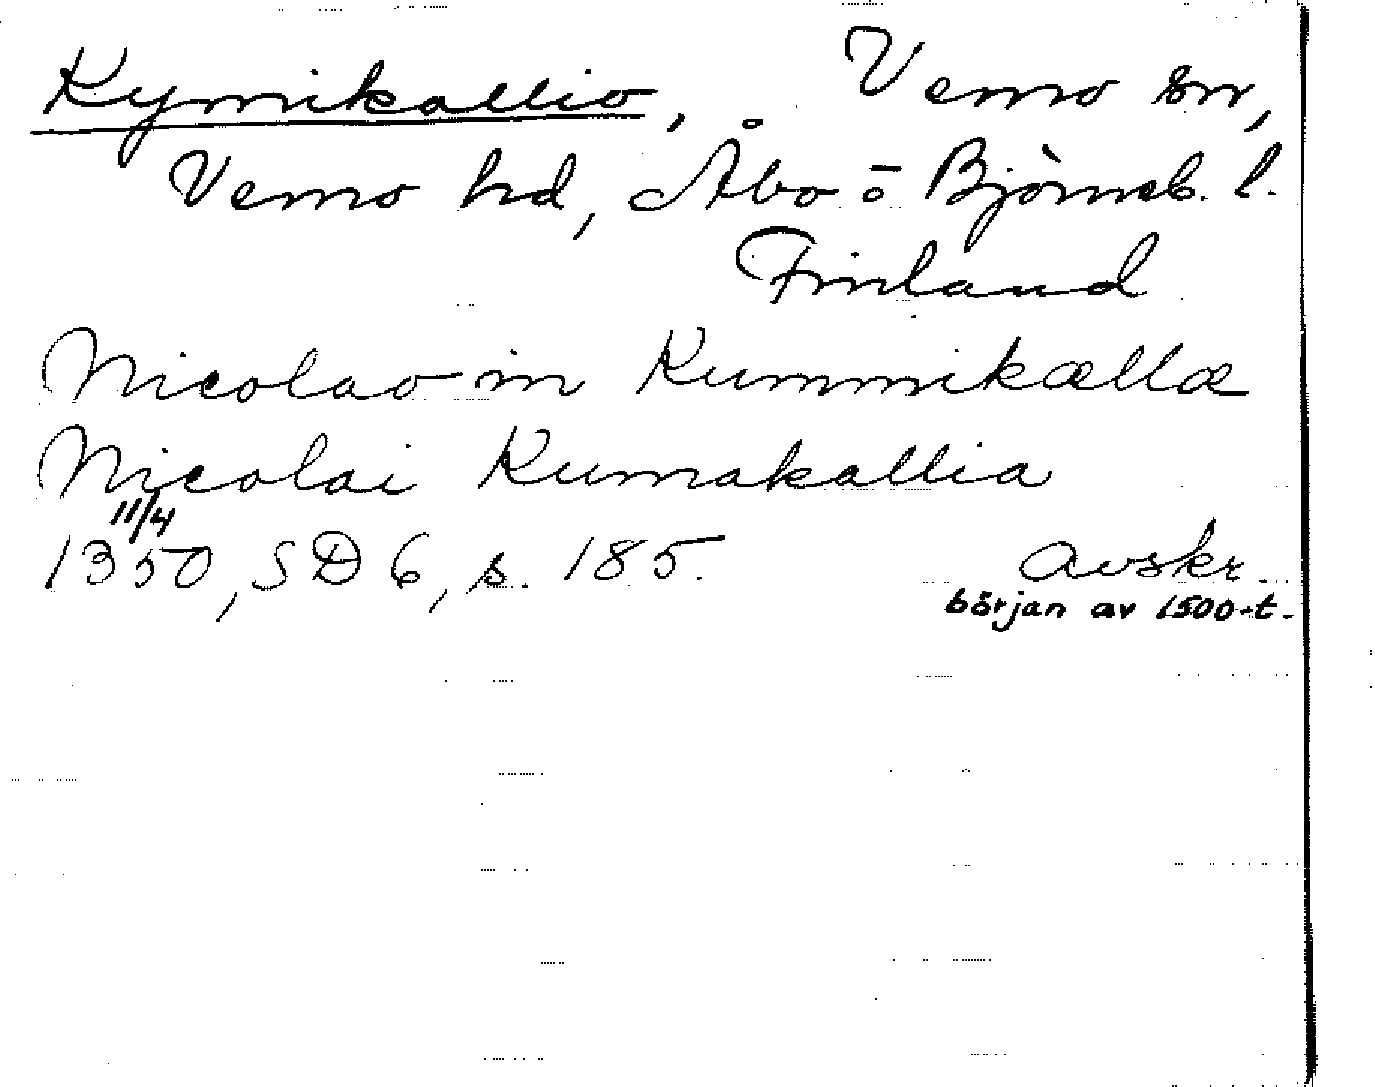 Kymikallio, Vemo sn,
Vemo hd, Åbo o Björneb. l.
Finland
Nicolao in Kummikællæ
Nicolai Kumakallia
11/4
1350, SD 6, s. 185. avskr.
början av 1500-t.